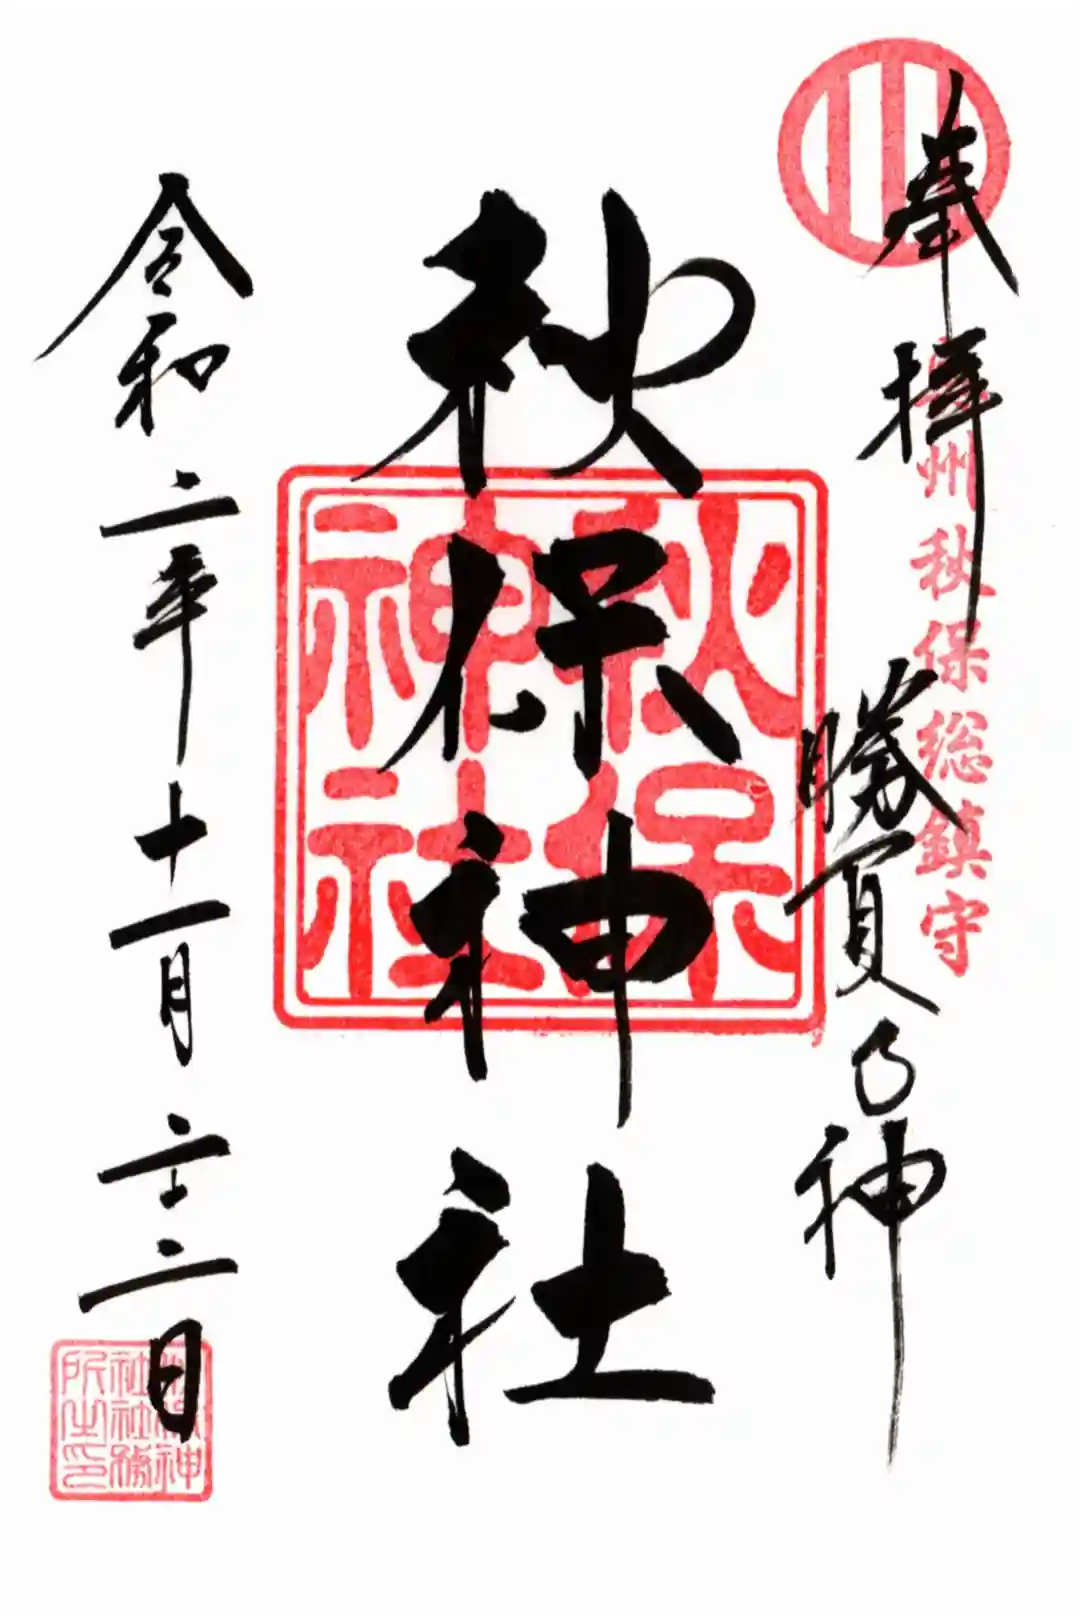 奉拝
州秋保総鎮守
勝負乃神
秋保神社
秋保
神社
令和二年十一月二十二日
神
社社務
所之印